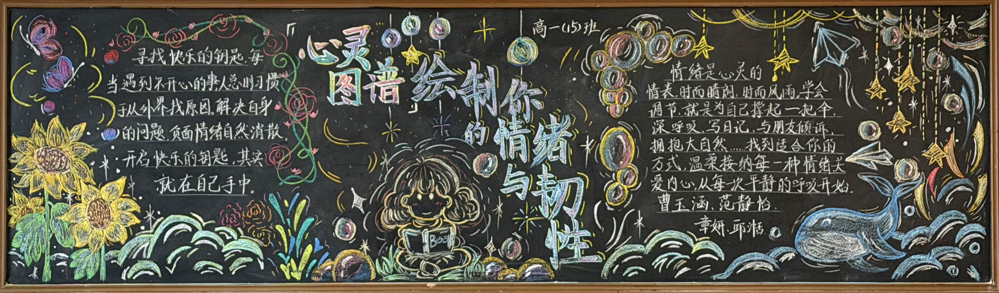 寻找快乐的钥匙,每
当遇到不开心的事人总时习惯
于从外界找原因,解决自身
的问题,负面情绪自然消散
开启快乐的钥匙,其实
就在自己手中.
「心灵
图谱」绘制你
的情绪
与韧性
Book
高一(15)班
情绪是心灵的
情表,时而晴朗,时而风雨,学会
调节,就是为自己撑起一把伞.
深呼吸,写日记,与朋友倾诉,
拥抱大自然……找到适合你的
方式,温柔接纳每一种情绪
爱内心,从每次平静的呼吸开始.
曹玉涵,范静怡
章妍,邱湉